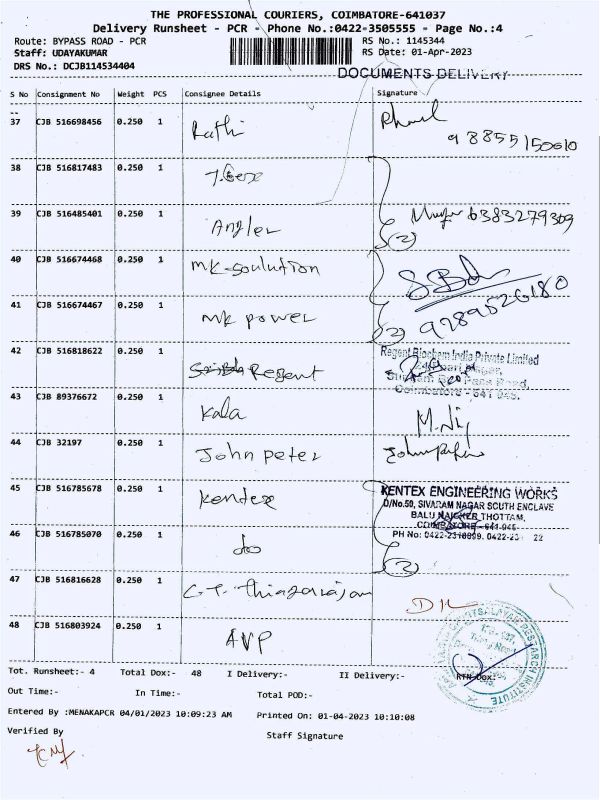 THE PROFESSIONAL COURIERS, COIMBATORE-641037
Delivery Runsheet - PCR - Phone No.:0422-3505555 - Page No.:4
Route: BYPASS ROAD - PCR RS No.: 1145344
Staff: UDAYAKUMAR RS Date: 01-Apr-2023
DRS No.: DCJB114534404
DOCUMENTS DELIVERY
S No Consignment No Weight PCS Consignee Details Signature
37 CJB 516698456 0.250 1 Rathi
98855150610
38 CJB 516817483 0.250 1
39 CJB 516485401 0.250 1 Angler 6383279309
(2)
40 CJB 516674468 0.250 1 MK-soulution
41 CJB 516674467 0.250 1 MK power (2) 9289526180
42 CJB 516818622 0.250 1 Regent Regent Biochem India Private Limited
43 CJB 89376672 0.250 1 Kala
44 CJB 32197 0.250 1 John peter Johnpeter
45 CJB 516785678 0.250 1 Kentex KENTEX ENGINEERING WORKS
D/No.50, SIVARAM NAGAR SOUTH ENCLAVE
BALU NAICKER THOTTAM,
COIMBATORE - 641 045
46 CJB 516785070 0.250 1 do PH No: 0422-2318099, 0422-23 22
(2)
47 CJB 516816628 0.250 1 C.T. Thiagarajan
48 CJB 516803924 0.250 1 AVP
Tot. Runsheet:- 4 Total Dox:- 48 I Delivery:- II Delivery:- RTN Dox:
Out Time:- In Time:- Total POD:-
Entered By :MENAKAPCR 04/01/2023 10:09:23 AM Printed On: 01-04-2023 10:10:08
Verified By Staff Signature